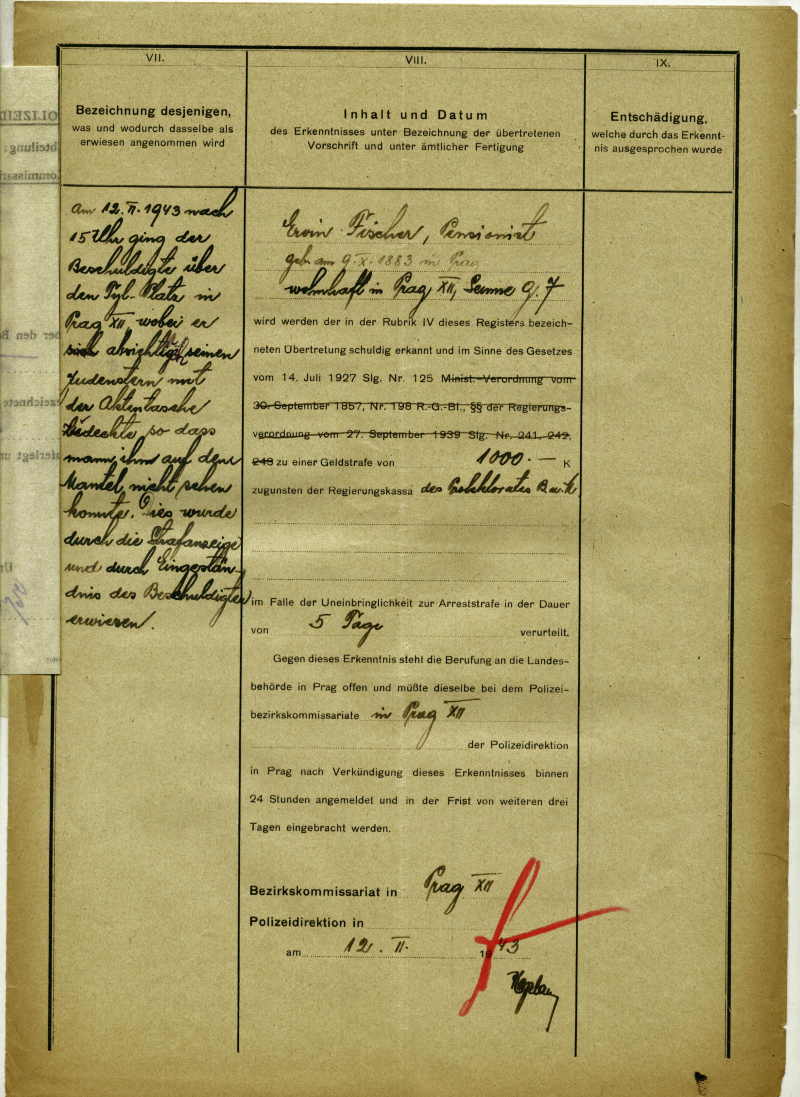 VII.
Bezeichnung desjenigen,
was und wodurch dasselbe als
erwiesen angenommen wird
Am 12.II.1943 nach
15 Uhr ging der
Beschuldigte über
den Tyl-Platz in
Prag XII, wobei er
sich absichtlich seinen
Judenstern mit
der Aktentasche
bedeckte, so dass
mann, ihm auf dem
Mantel nicht sehen
konnte. Dies wurde
durch die Strafanzeige
und durch Eingestän-
dnis des Beschuldigten
erwiesen.
VIII.
Inhalt und Datum
des Erkenntnisses unter Bezeichnung der übertretenen
Vorschrift und unter ämtlicher Fertigung
Ervin Fischer, Pensionist
geb. am 9.X.1883 in Prag
wohnhaft in Prag XII, g. 7
wird werden der in der Rubrik IV dieses Registers bezeich-
neten Übertretung schuldig erkannt und im Sinne des Gesetzes
vom 14. Juli 1927 Slg. Nr. 125 Minist.-Verordnung vom
30. September 1857, Nr. 198 R.-G.-Bl., §§ der Regierungs-
verordnung vom 27. September 1939 Slg. Nr. 241, 242,
243 zu einer Geldstrafe von 1000.— K
zugunsten der Regierungskassa des Protektorates B. u. M.
im Falle der Uneinbringlichkeit zur Arreststrafe in der Dauer
von 5 Tage verurteilt.
Gegen dieses Erkenntnis steht die Berufung an die Landes-
behörde in Prag offen und müßte dieselbe bei dem Polizei-
bezirkskommissariate in Prag XII
der Polizeidirektion
in Prag nach Verkündigung dieses Erkenntnisses binnen
24 Stunden angemeldet und in der Frist von weiteren drei
Tagen eingebracht werden.
Bezirkskommissariat in Prag XII
Polizeidirektion in
am 12. II. 1943
IX.
Entschädigung,
welche durch das Erkennt-
nis ausgesprochen wurde